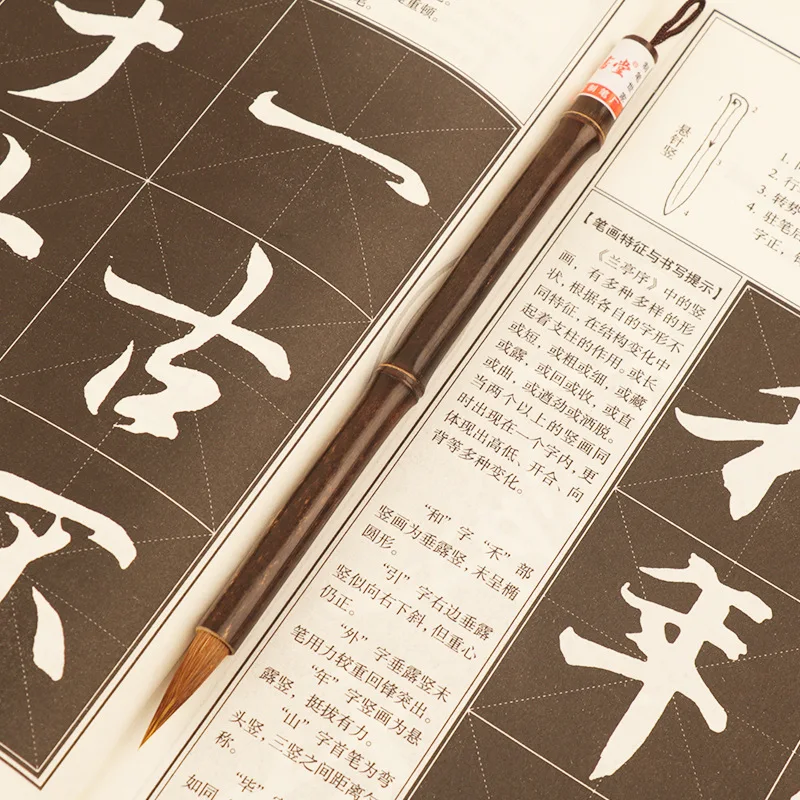 是重顿
笔。
一
古
堂
制笔厂
悬针竖
1
2
3
4
1.
2. 行
3. 转势
4. 驻笔后
字正，
【笔画特征与书写提示】
《兰亭序》中的竖
画，有多种多样的形
状，根据各自的字形不
同特征，在结构变化中
起着支柱的作用。或长
或短，或粗或细，或藏
或露，或回或收，或直
或曲，或遒劲或洒脱。
当两个以上的竖画同
时出现在一个字内，更
体现出高低、开合、向
背等多种变化。
“和”字“不”部
竖画为垂露竖，末呈椭
圆形。
“引”字右边垂露
竖似向右下斜，但重心
仍正。
“外”字垂露竖末
笔用力较重回锋突出。
“年”字竖画为悬
露竖，挺拔有力。
“山”字首笔为弯
头竖，三竖之间距离匀
称。
“毕”
如同
年